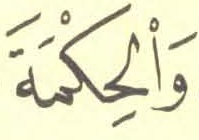 وَاْلحِكْمَةَ